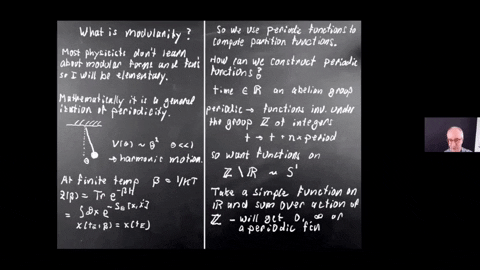 What is modularity?
Most physicists don't learn
about modular forms and
so I will be elementary.
Mathematically it is a general
ization of periodicity.
V(θ) ~ θ² θ<<1
→ harmonic motion.
θ
At finite temp β = 1/kT
Z(β) = Tr e^{-βH}
= ∫Dx e^{-S_E[x,ẋ]}
x(t_E+β) = x(t_E)
So we use periodic functions to
compute partition functions.
How can we construct periodic
functions?
time ∈ ℝ an abelian group
periodic → functions inv. under
the group ℤ of integers
t → t + n × period
So want functions on
ℤ \ ℝ ~ S¹
Take a simple function on
ℝ and sum over action of
ℤ - will get 0, ∞ or
a periodic fcn